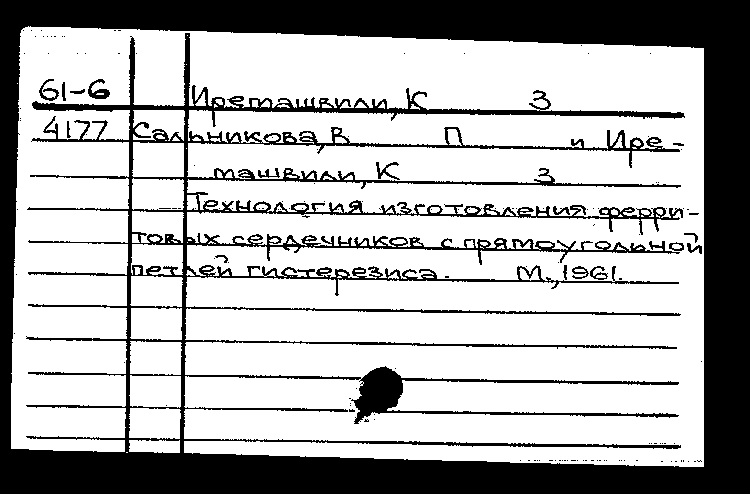 61-6 Иреташвили, К З
4177 Сальникова, В П и Ире-
ташвили, К З
Технология изготовления ферри-
товых сердечников с прямоугольной
петлей гистерезиса. М., 1961.